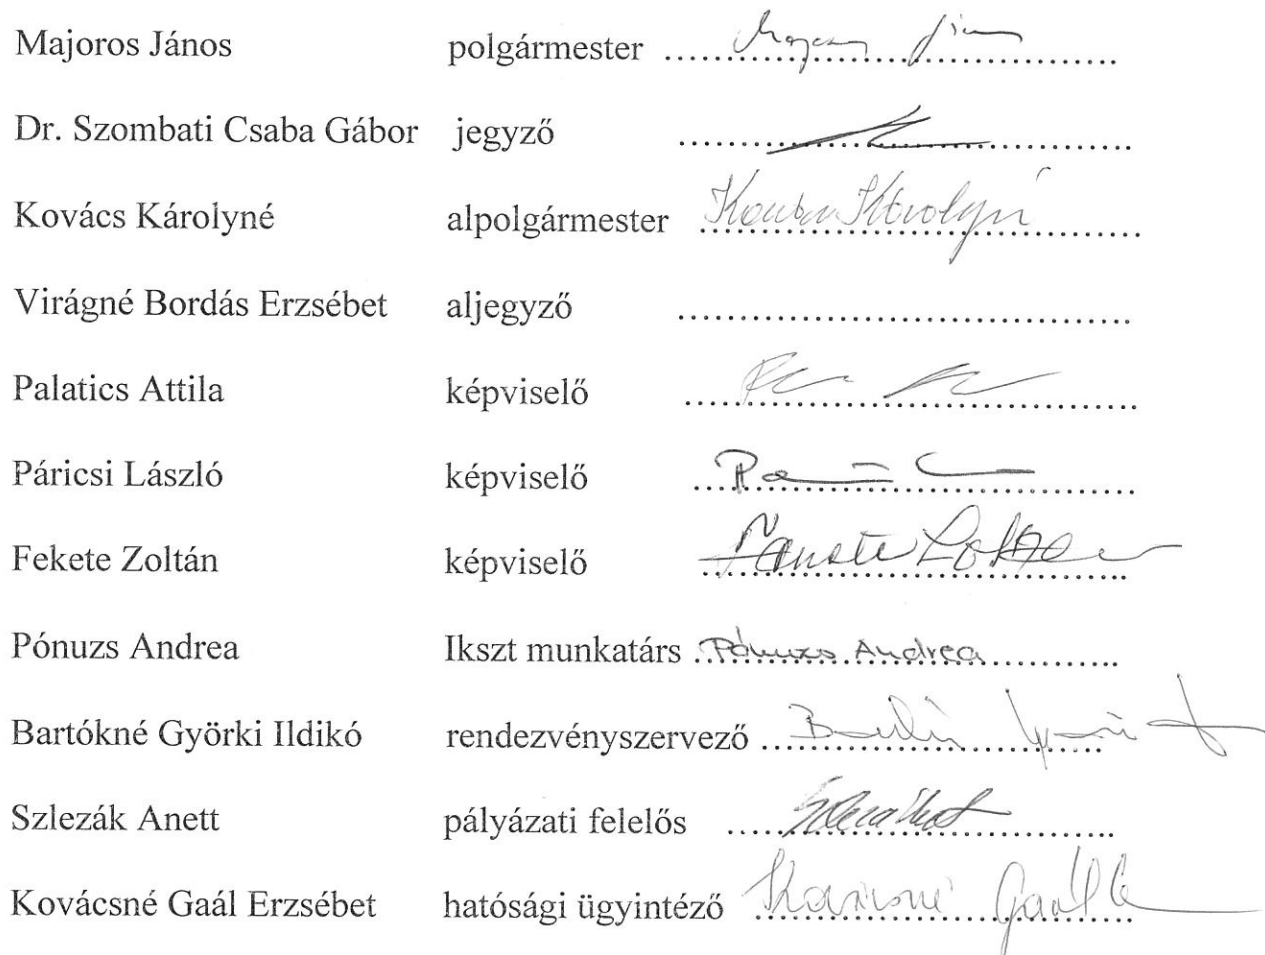 Majoros János polgármester ........................................
Dr. Szombati Csaba Gábor jegyző ........................................
Kovács Károlyné alpolgármester Kovács Károlyné
Virágné Bordás Erzsébet aljegyző ........................................
Palatics Attila képviselő ........................................
Páricsi László képviselő ........................................
Fekete Zoltán képviselő ........................................
Pónuzs Andrea Ikszt munkatárs Pónuzs Andrea
Bartókné Györki Ildikó rendezvényszervező ........................................
Szlezák Anett pályázati felelős ........................................
Kovácsné Gaál Erzsébet hatósági ügyintéző Kovácsné Gaál E